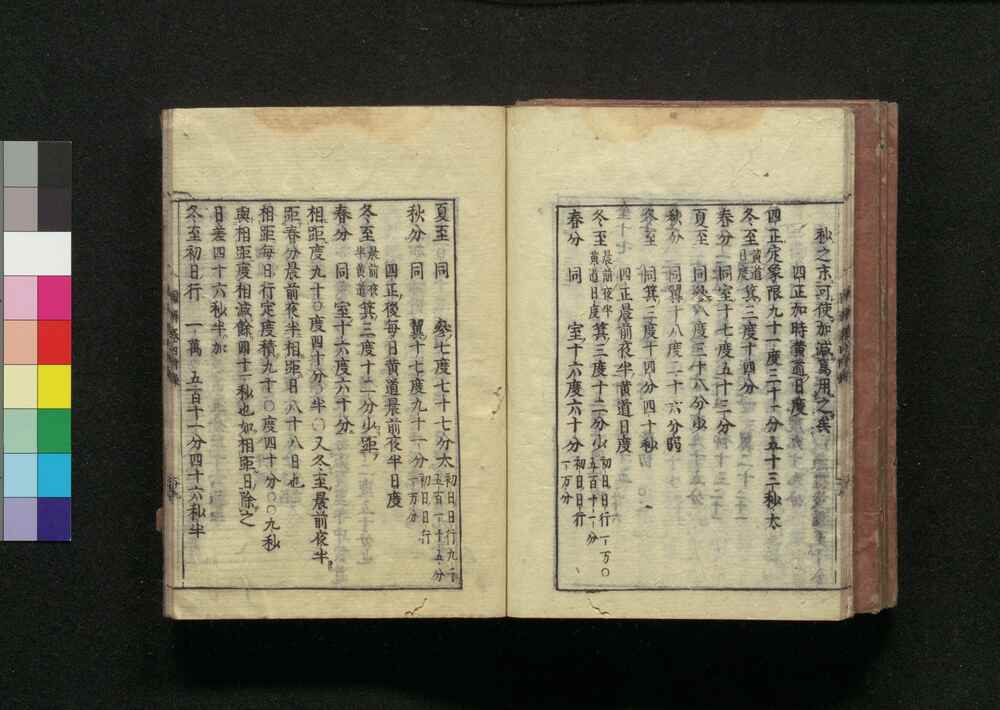 秋之末可使加減萬用之矣
四正加時黄道日度
四正定象限九十一度三十一分五十三秒太
冬至黄道日度箕三度十四分
春分同室十七度五十三分
夏至同参八度三十八分少
秋分同翼十八度二十六分弱
冬至同箕三度十四分四十秒
四正晨前夜半黄道日度
冬至晨前夜半黄道日度箕三度十二分少初日日行一万〇五百十一分
春分同室十六度六十分初日日行一万分
夏至同参七度七十七分太初日日行九千五百一十五分
秋分同翼十七度九十一分初日日行一万分
四正後毎日黄道晨前夜半日度
冬至晨前夜半黄道箕三度十二分少距
春分同室十六度六十分
相距度九十〇度四十分〇半〇又冬至晨前夜半
距春分晨前夜半相距日八十八日也
相距毎日行定度積九十〇度四十分〇〇九秒
與相距度相減餘四十一秒也如相距日除之
日差四十六秒半加
冬至初日行一萬五百十一分四十六秒半